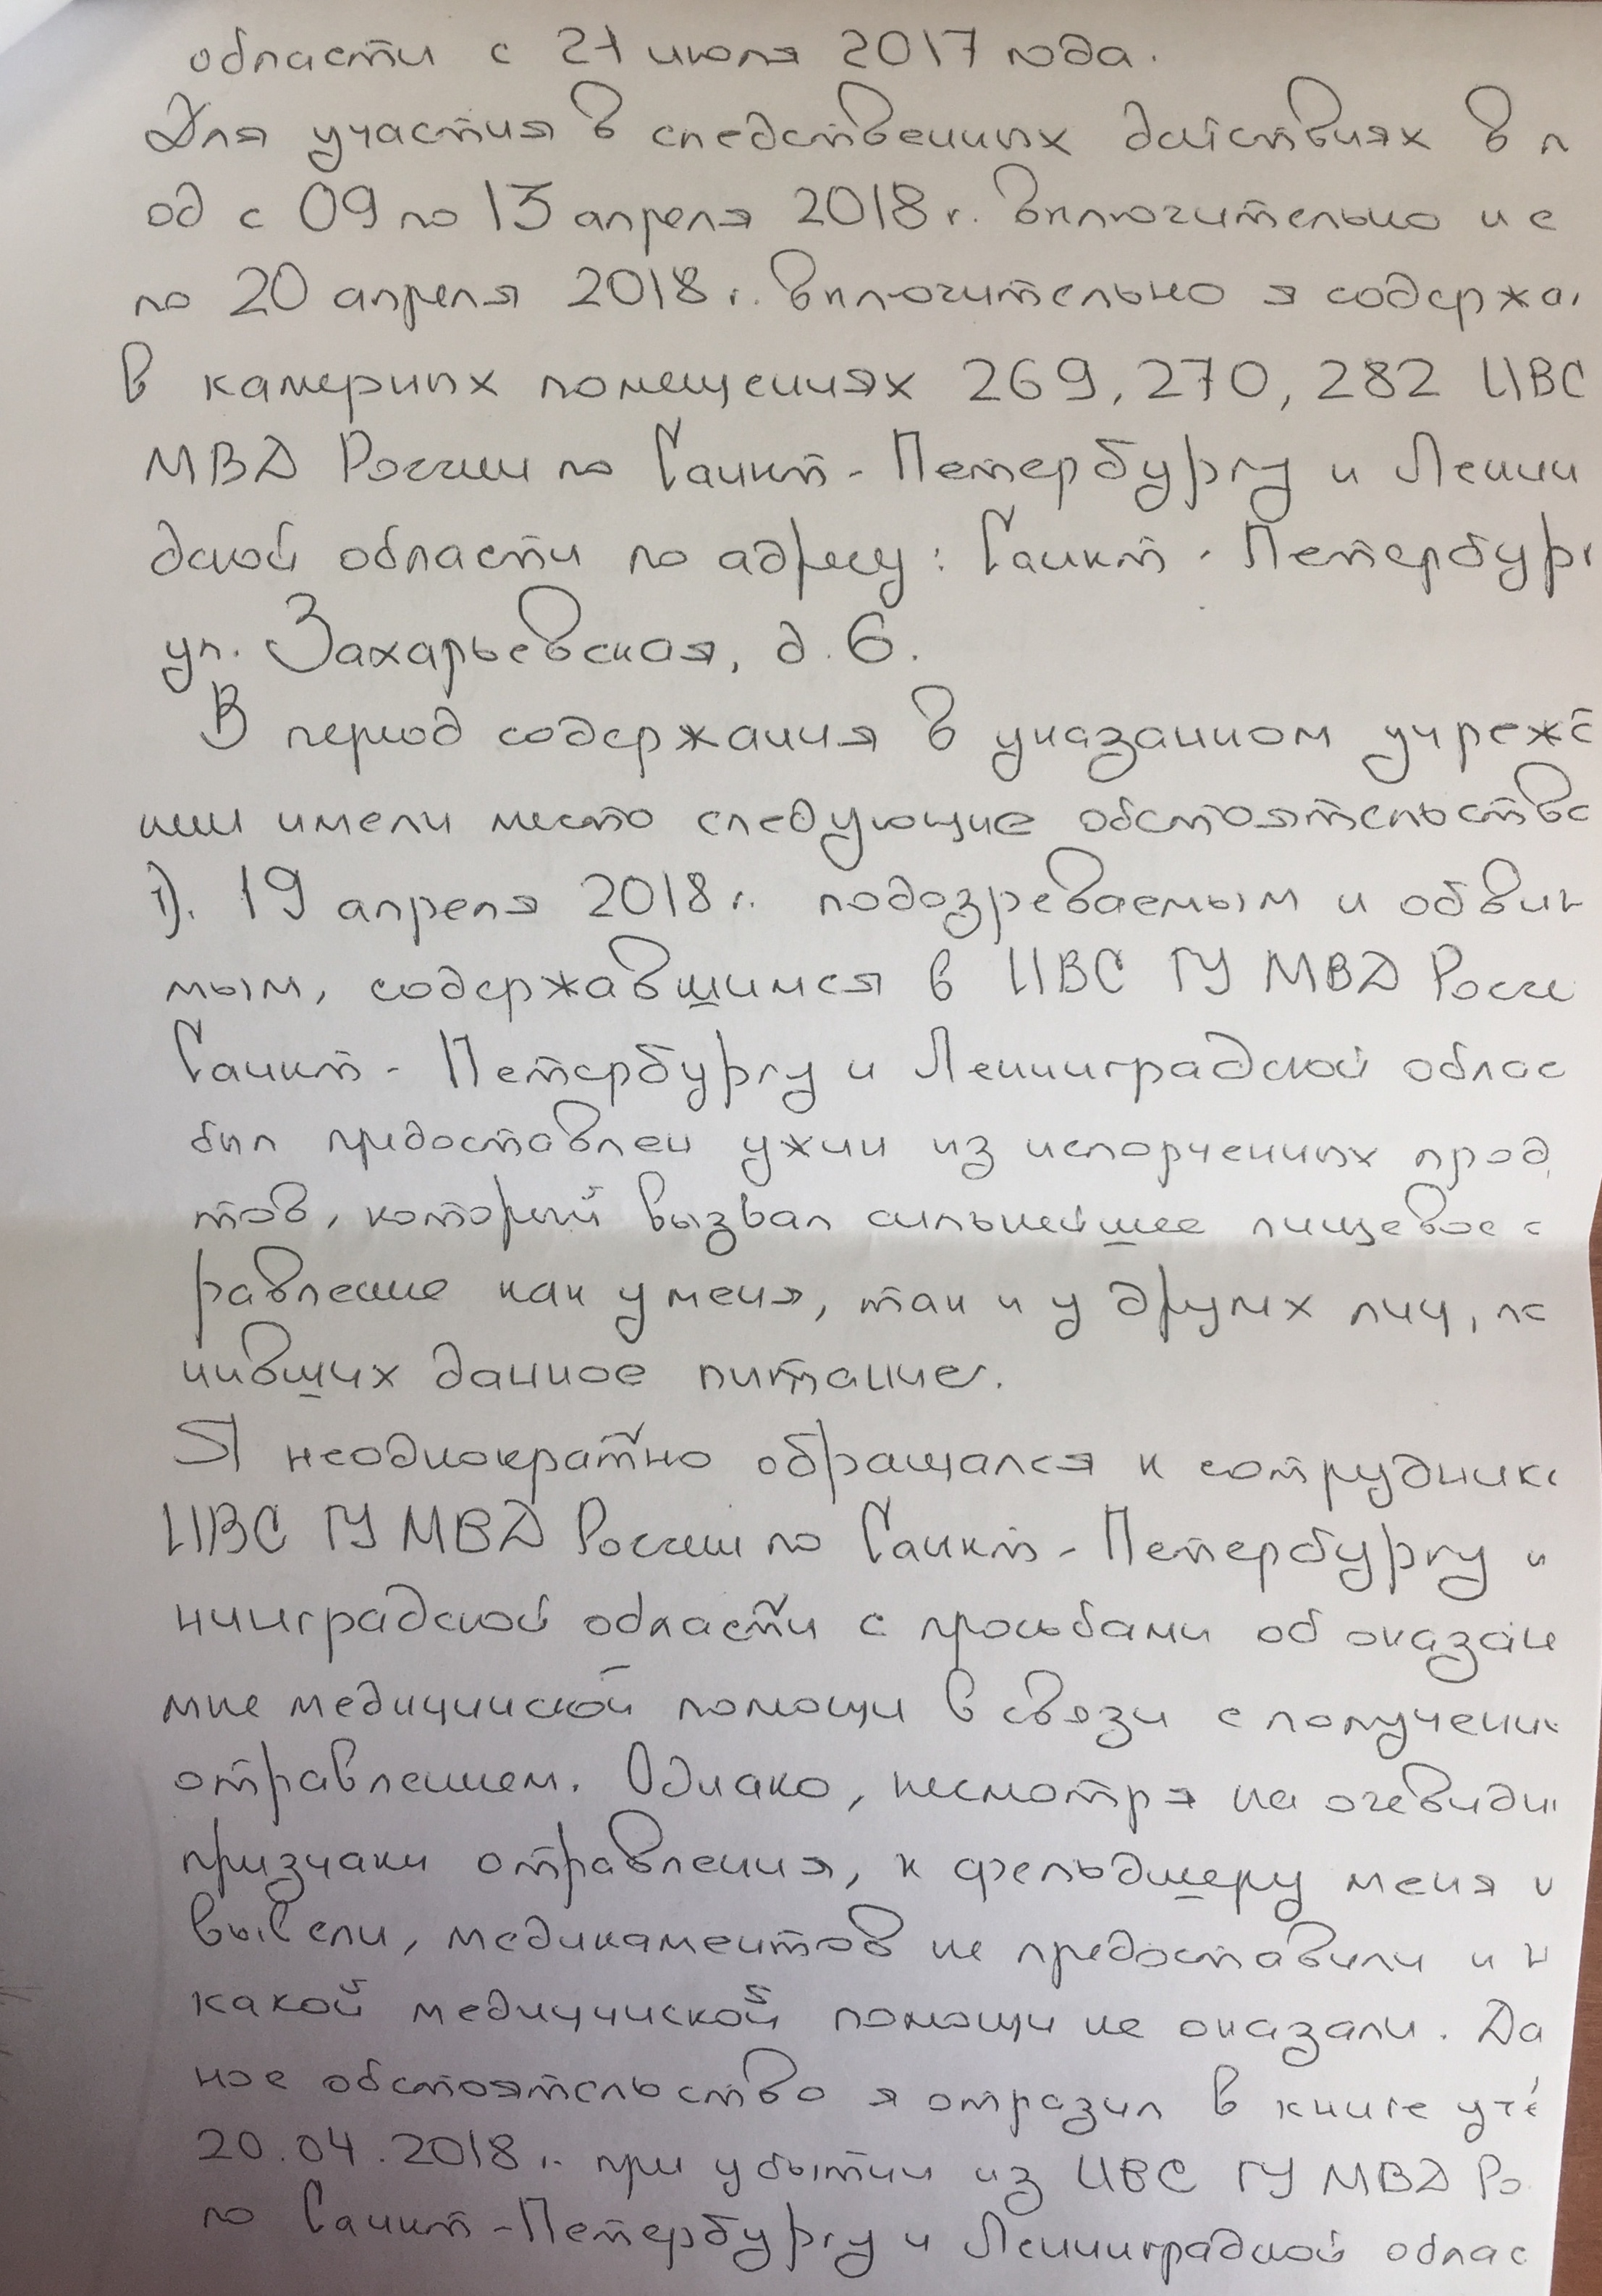 области с 21 июля 2017 года.
Для участия в следственных действиях в п
од с 09 по 13 апреля 2018 г. включительно и с
по 20 апреля 2018 г. включительно я содержа
в камерных помещениях 269, 270, 282 ИВС
МВД России по Санкт-Петербургу и Ленин
дской области по адресу: Санкт-Петербург
ул. Захарьевская, д. 6.
В период содержания в указанном учрежд
нии имели место следующие обстоятельства
1). 19 апреля 2018 г. подозреваемым и обвин
мым, содержавшимся в ИВС ГУ МВД Росси
Санкт-Петербургу и Ленинградской облас
был предоставлен ужин из испорченных прод
тов, который вызвал сильнейшее пищевое о
равление как у меня, так и у других лиц, по
нивших данное питание.
Я неоднократно обращался к сотрудника
ИВС ГУ МВД России по Санкт-Петербургу и
нинградской области с просьбами об оказан
мне медицинской помощи в связи с получени
отравлением. Однако, несмотря на очевидн
признаки отравления, к фельдшеру меня н
вывели, медикаментов не предоставили и н
какой медицинской помощи не оказали. Дан
ное обстоятельство я отразил в книге учё
20.04.2018 г. при убытии из ИВС ГУ МВД Ро
по Санкт-Петербургу и Ленинградской облас